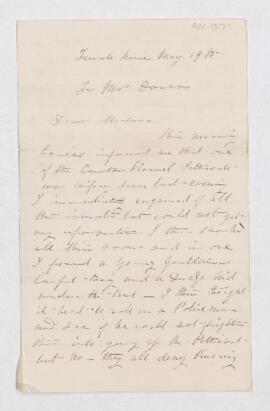 Acc. 1977
Female home May 19th
To Mrs Dawson
Dear Madam
This morning
informed me that one
of the Flannel Petticoats
was since last evening
I immediately enquired of all
the inmates but could not get
any information I then searched
all their rooms and in one
I found a young Gentlemans
and a Dress hid
under the bed – I then thought
it best to call in a Policeman
and see if he could not frighten
them into giving up the Petticoat
but no – they all deny knowing